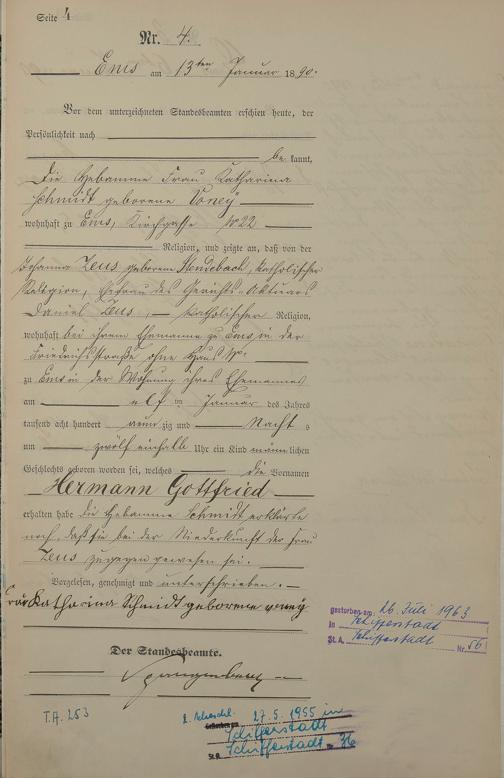 Seite 4
Nr. 4.
Ems am 13ten Januar 1890.
Vor dem unterzeichneten Standesbeamten erschien heute, der
Persönlichkeit nach
be kannt,
die Hebamme Frau Katharina
Schmidt geborene
wohnhaft zu Ems, Kirchgasse No 22
Religion, und zeigte an, daß von der
Johanna Zeus geborene katholischer
Religion, Ehefrau des Gerichts-Aktuars
Daniel Zeus, katholischer Religion,
wohnhaft bei ihrem Ehemanne zu Ems in der
Friedrichsstraße ohne Haus No
zu Ems in der Wohnung ihres Ehemannes
am elf ten Januar des Jahres
tausend acht hundert neun zig und Nacht s
um zwölf einhalb Uhr ein Kind männ lichen
Geschlechts geboren worden sei, welches die Vornamen
Hermann Gottfried
erhalten habe die Hebamme Schmidt erklärte
noch, daß sie bei der Niederkunft der Frau
Zeus zugegen gewesen sei.
Vorgelesen, genehmigt und unterschrieben.
Frau Katharina Schmidt geborene
gestorben am: 26. Juli 1963
in Schifferstadt
St. A. Schifferstadt Nr. 56
Der Standesbeamte.
T.A. 253
27.5.1955 in
Schifferstadt
St.A. Schifferstadt